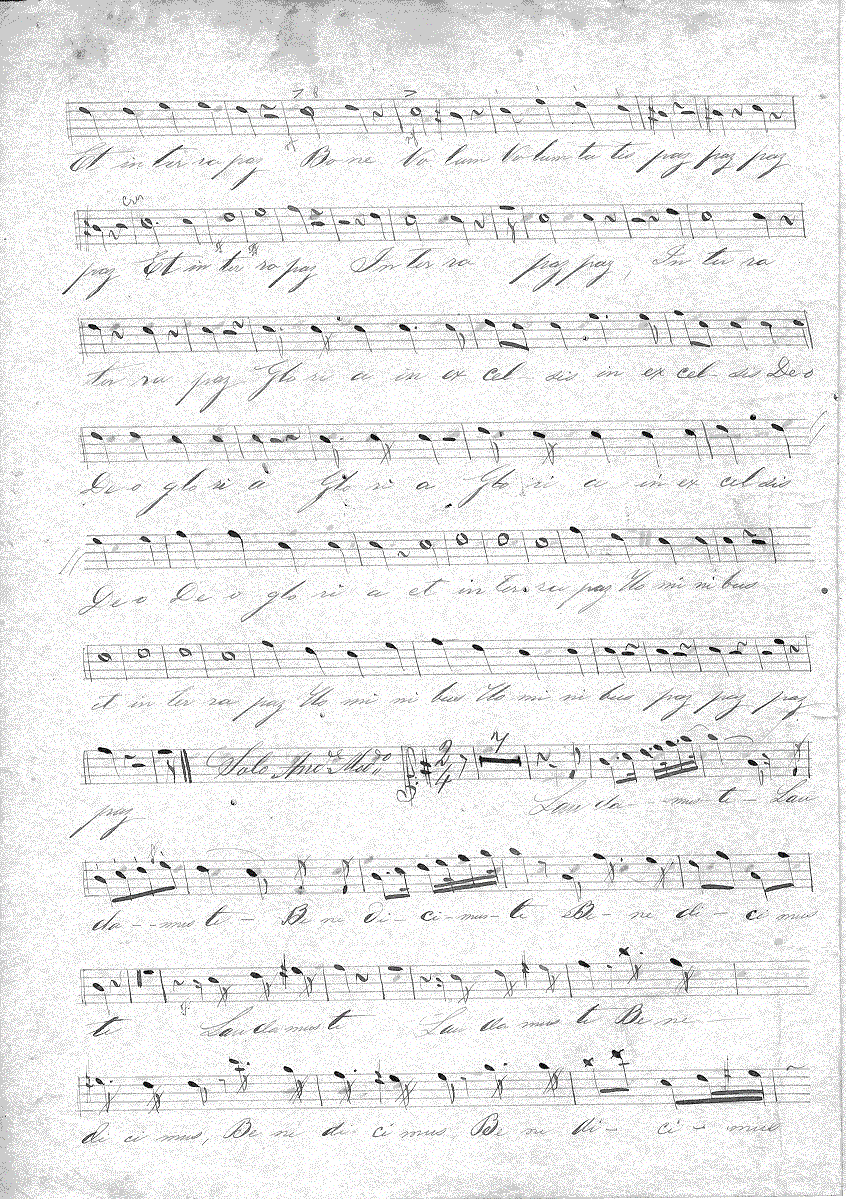 Et in ter ra pax Bo ne Vo lum Vo lum ta tis pax pax pax
pax Et in ter ra pax In ter ra pax pax, In ter ra
ter ra pax Glo ri a in ex cel- sis in ex cel- sis De o
De o glo ri a Glo ri a Glo ri a in ex cel sis
De o De o glo ri a et in ter ra pax Ho mi ni bus
et in ter ra pax Ho mi ni bus Ho mi ni bus pax pax pax
Solo 2/4 7
pax Lau da-- mus- te- Lau
da-- mus te- Be ne di- ci- mus- te Be- ne di- ci mus
te Lau da mus te Lau da mus te Be ne
di ci mus, Be ne di ci mus, Be ne di- ci- mus